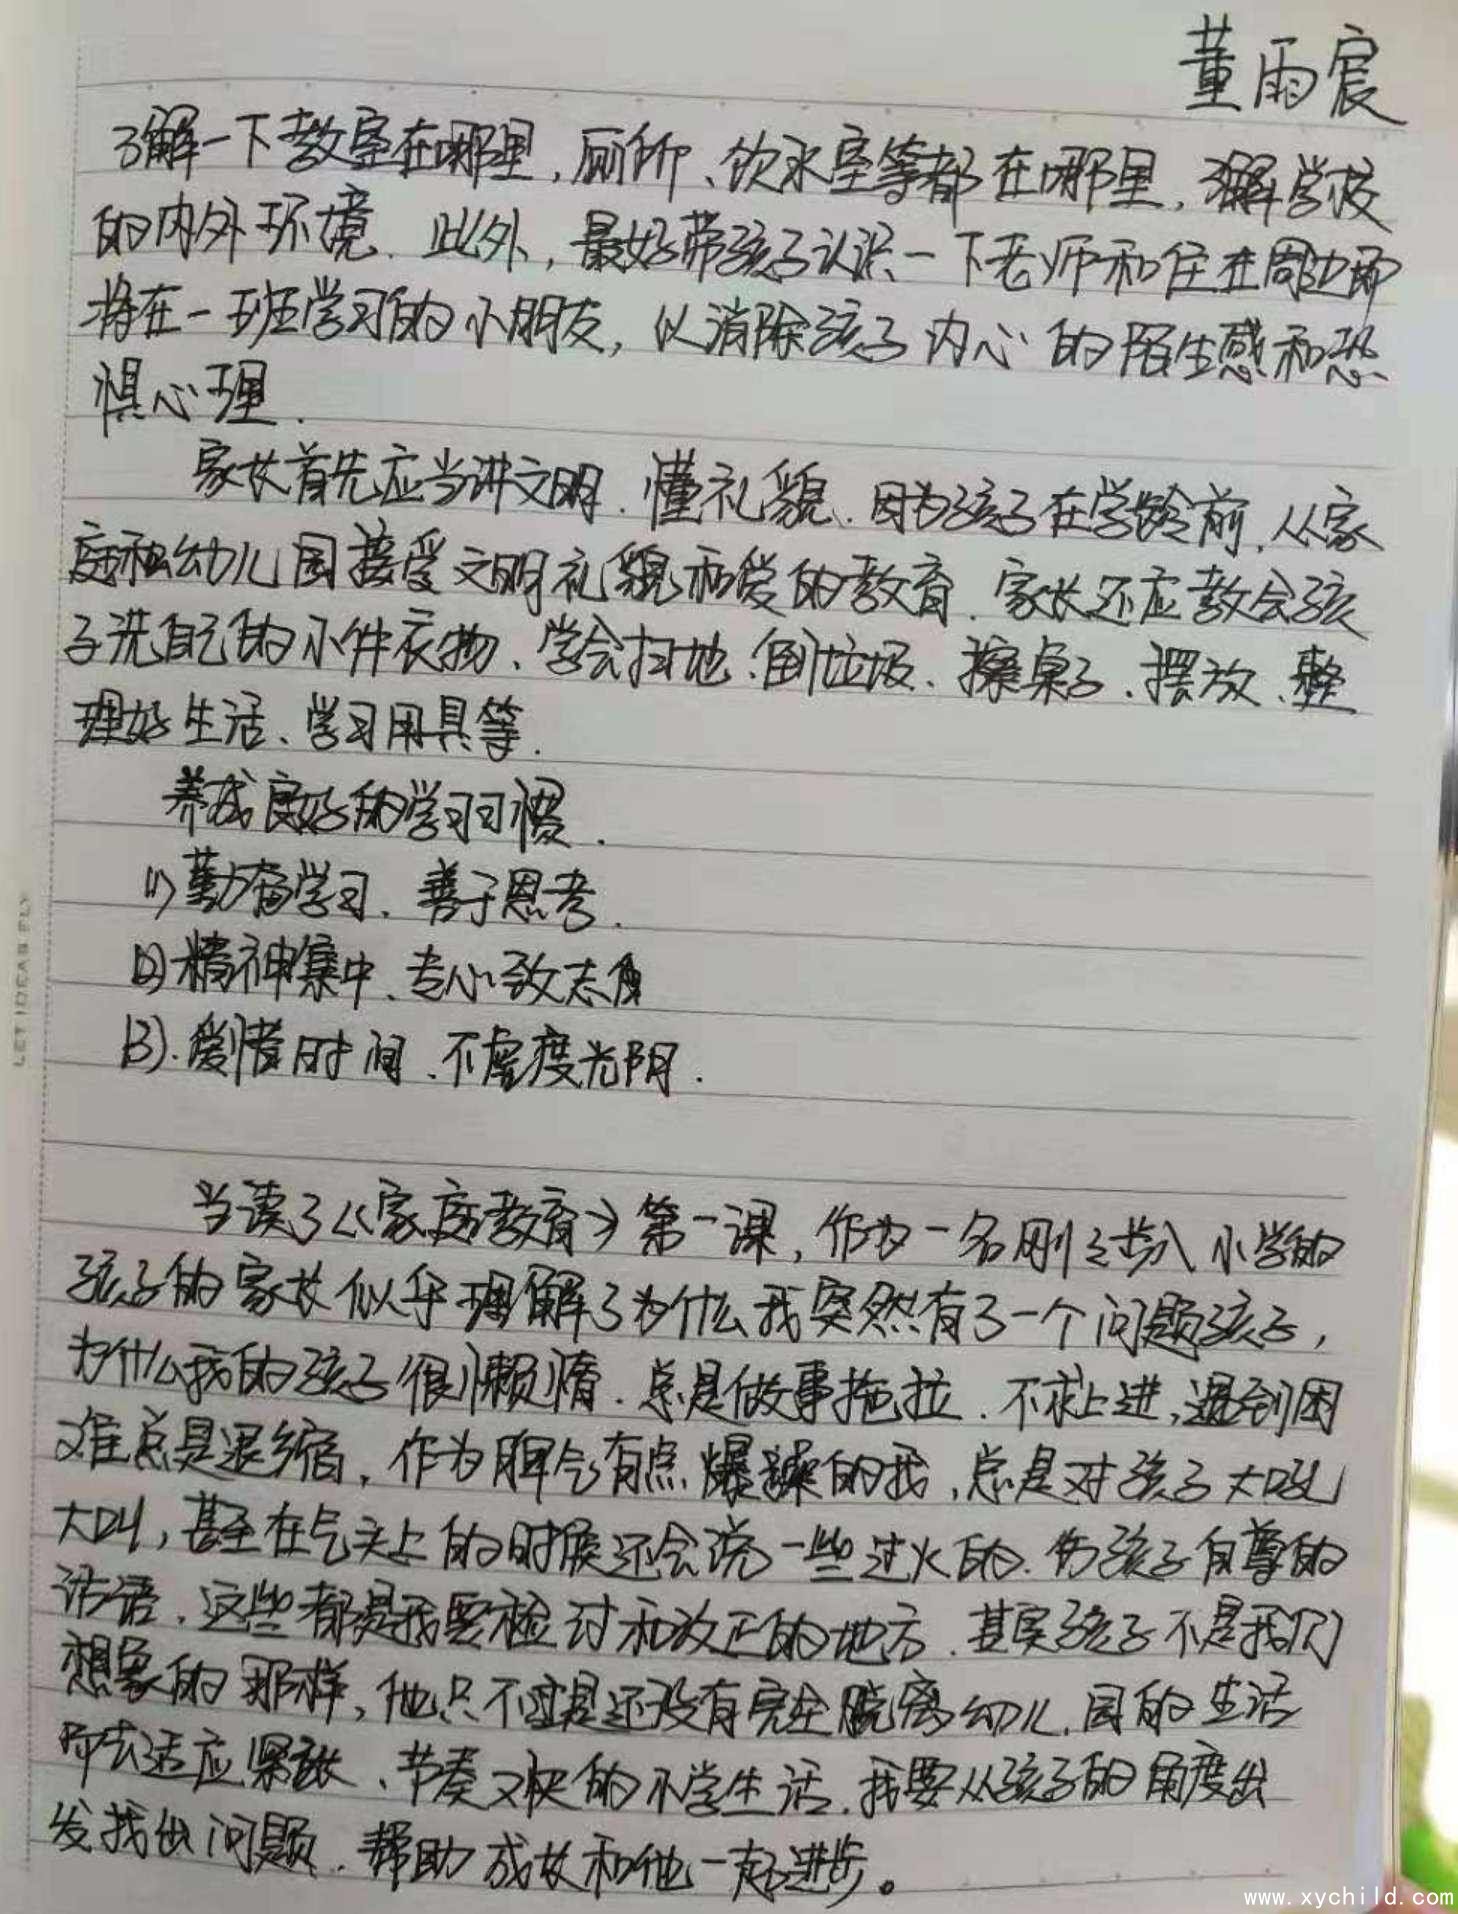 董雨宸
了解一下教室在哪里，厕所、饮水室等都在哪里，了解学校
的内外环境．此外，最好带孩子认识一下老师和住在周边即
将在一班学习的小朋友，以消除孩子内心的陌生感和恐
惧心理．
家长首先应当讲文明．懂礼貌．因为孩子在学龄前，从家
庭和幼儿园接受文明礼貌和爱的教育．家长还应教会孩
子洗自己的小件衣物、学会扫地、倒垃圾、擦桌子、摆放、整
理好生活、学习用具等．
养成良好的学习习惯．
(1)勤奋学习、善于思考．
(2)精神集中、专心致志
(3)．爱惜时间．不虚度光阴．
当读了《家庭教育》第一课，作为一名刚步入小学的
孩子的家长似乎理解了为什么我突然有了一个问题孩子，
为什么我的孩子很懒惰．总是做事拖拉．不求上进，遇到困
难总是退缩，作为脾气有点爆躁的我，总是对孩子大吼
大叫，甚至在气头上的时候还会说一些过火的．伤孩子自尊的
话语．这些都是我要检讨和改正的地方．其实孩子不是我们
想象的那样，他只不过是还没有完全脱离幼儿园的生活
即去适应紧张、节奏又快的小学生活．我要从孩子的角度出
发找出问题．帮助成长和他一起进步。
LET IDEAS FLY
www.xychild.com